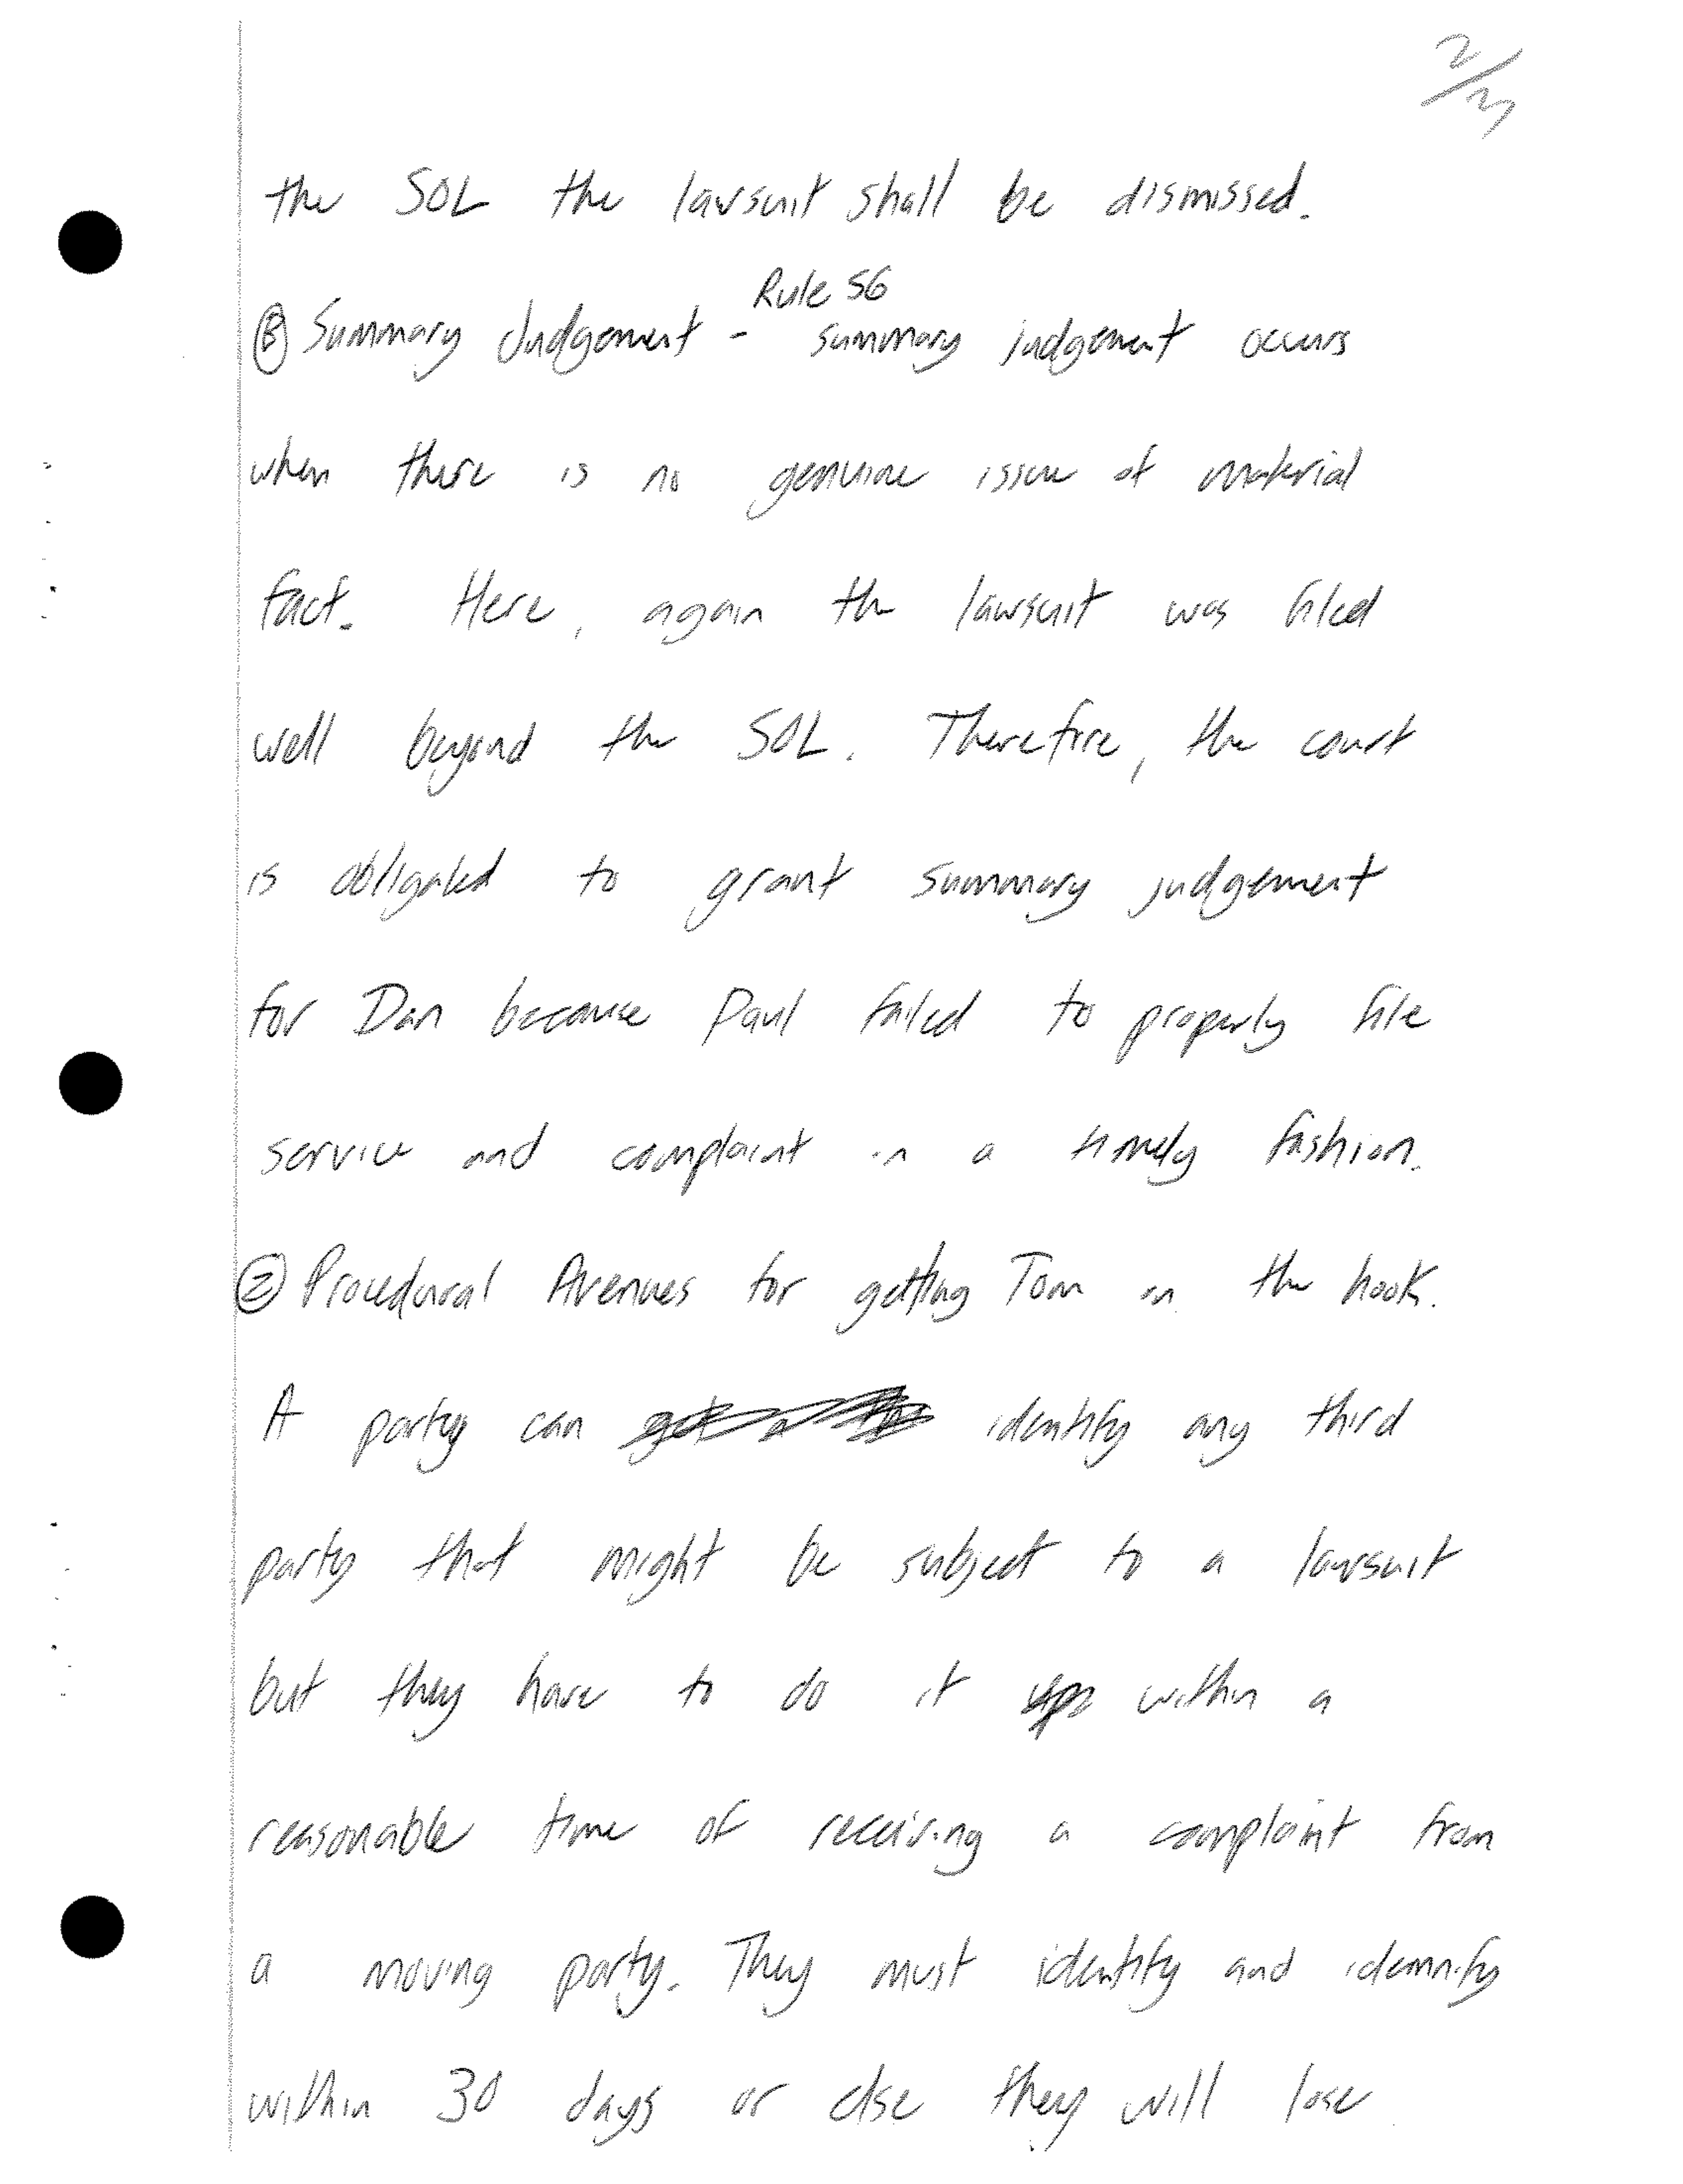 2/27
the SOL the lawsuit shall be dismissed.
Rule 56
Ⓑ Summary Judgement - summary judgement occurs
when there is no genuine issue of material
fact. Here, again the lawsuit was filed
well beyond the SOL. Therefore, the court
is obligated to grant summary judgement
for Dan because Paul failed to properly file
service and complaint in a timely fashion.
② Procedural Avenues for getting Tom on the hook.
A party can identify any third
party that might be subject to a lawsuit
but they have to do it within a
reasonable time of receiving a complaint from
a moving party. They must identify and idemnify
within 30 days or else they will lose